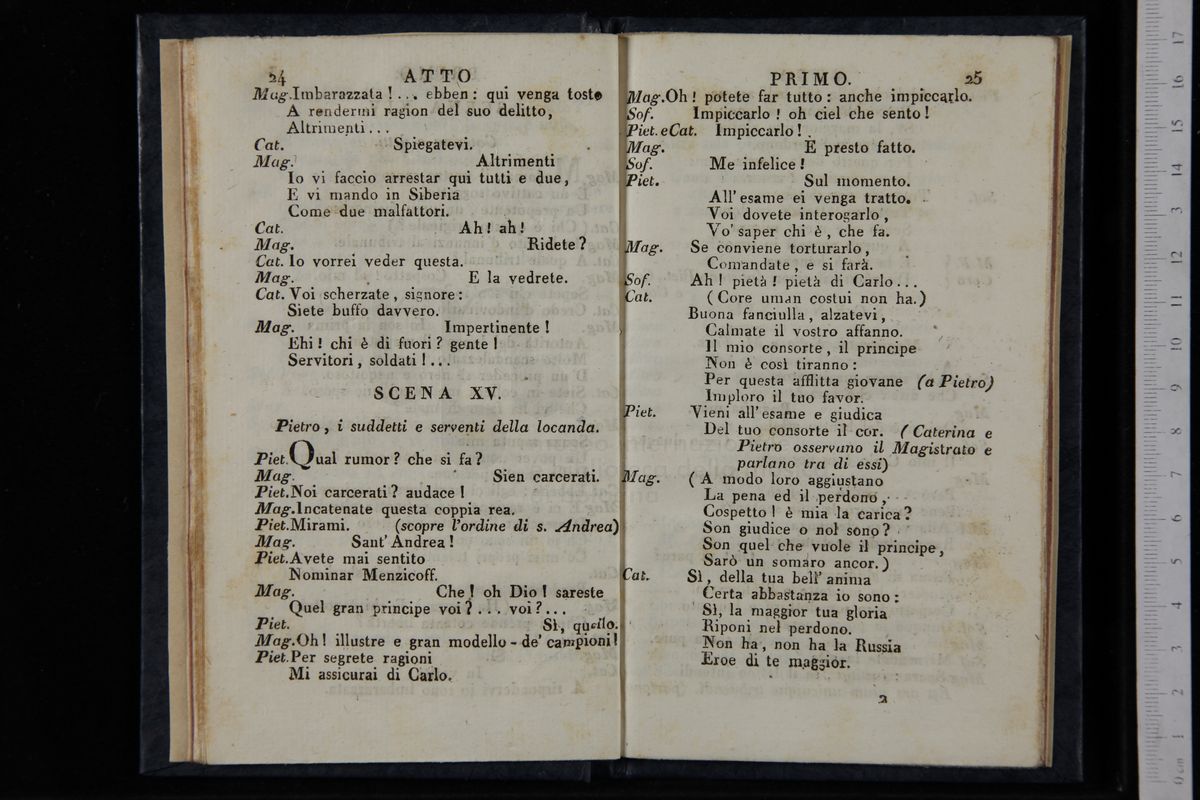 24 ATTO
Mag. Imbarazzata! ... ebben: qui venga tosto
A rendermi ragion del suo delitto,
Altrimenti...
Cat. Spiegatevi.
Mag. Altrimenti
Io vi faccio arrestar qui tutti e due,
E vi mando in Siberia
Come due malfattori.
Cat. Ah! ah!
Mag. Ridete?
Cat. Io vorrei veder questa.
Mag. E la vedrete.
Cat. Voi scherzate, signore:
Siete buffo davvero.
Mag. Impertinente!
Ehi! chi è di fuori? gente!
Servitori, soldati!...
SCENA XV.
Pietro, i suddetti e serventi della locanda.
Piet. Qual rumor? che si fa?
Mag. Sien carcerati.
Piet. Noi carcerati? audace!
Mag. Incatenate questa coppia rea.
Piet. Mirami. (scopre l'ordine di s. Andrea)
Mag. Sant' Andrea!
Piet. Avete mai sentito
Nominar Menzicoff.
Mag. Che! oh Dio! sareste
Quel gran principe voi?... voi?...
Piet. Sì, quello.
Mag. Oh! illustre e gran modello - de' campioni!
Piet. Per segrete ragioni
Mi assicurai di Carlo.
PRIMO. 25
Mag. Oh! potete far tutto: anche impiccarlo.
Sof. Impiccarlo! oh ciel che sento!
Piet. e Cat. Impiccarlo!
Mag. E presto fatto.
Sof. Me infelice!
Piet. Sul momento.
All' esame ei venga tratto.
Voi dovete interogarlo,
Vo' saper chi è, che fa.
Mag. Se conviene torturarlo,
Comandate, e si farà.
Sof. Ah! pietà! pietà di Carlo...
Cat. (Core uman costui non ha.)
Buona fanciulla, alzatevi,
Calmate il vostro affanno.
Il mio consorte, il principe
Non è così tiranno:
Per questa afflitta giovane (a Pietro)
Imploro il tuo favor.
Piet. Vieni all' esame e giudica
Del tuo consorte il cor. (Caterina e
Pietro osservano il Magistrato e
parlano tra di essi)
Mag. (A modo loro aggiustano
La pena ed il perdono,
Cospetto! è mia la carica?
Son giudice o nol sono?
Son quel che vuole il principe,
Sarò un somaro ancor.)
Cat. Sì, della tua bell' anima
Certa abbastanza io sono:
Sì, la maggior tua gloria
Riponi nel perdono.
Non ha, non ha la Russia
Eroe di te maggior.
2